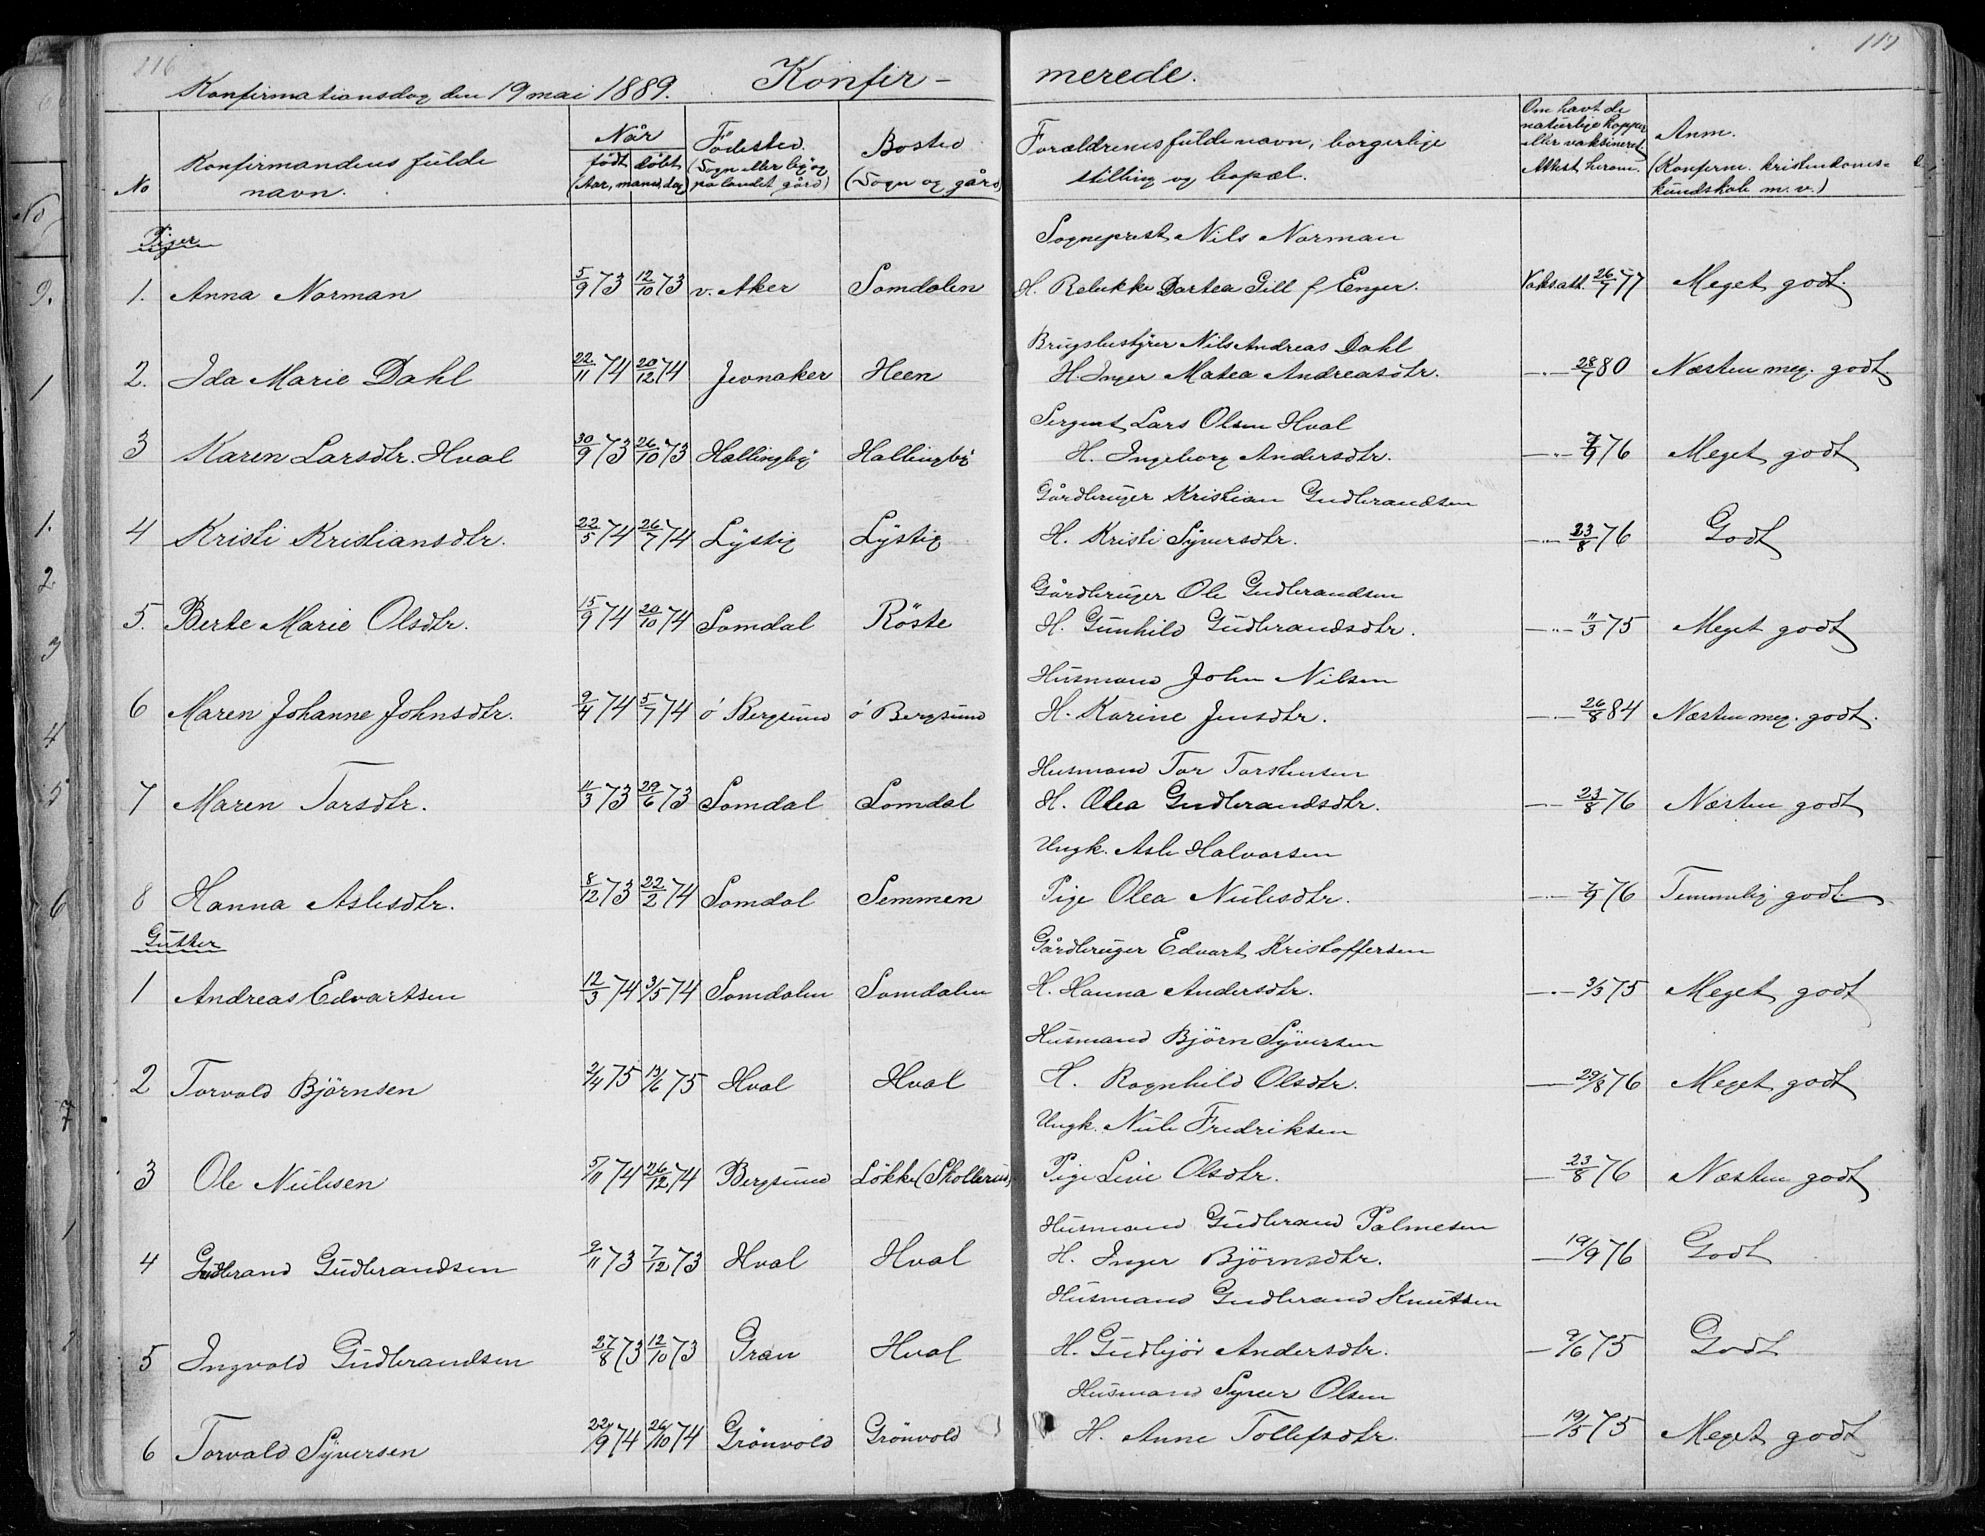 116
117
Konfirmationsdag den 19 mai 1889.
Konfir-
merede.
No
Konfirmandens fulde navn.
Når
født
döbt
(Aar, maned, dag)
Födested.
(Sogn eller by og
pa landet gård)
Bosted
(Sogn og gård)
Forældrenes fulde navn, borgerlige
stilling og bopæl.
Om havt de
naturlige kopper
eller vaksineret
Attest herom.
Anm.
(Konferm. kristendoms=
kundskab m. v.)
Piger
Sogneprest Nils Norman
1. Anna Norman 5/9 73 12/10 73 v. Aker Somdalen H. Rebekke Dortea Gill f Enger. Vaks.att. 26/7 77 Meget godt.
Brugsbestyrer Nils Andreas Dahl
2. Ida Marie Dahl 22/11 74 20/12 74 Jevnaker Heen H. Inger Matea Andreasdtr. —"— 28/7 80 Næsten meg. godt.
Sergent Lars Olsen Hval
3 Karen Larsdtr. Hval 30/9 73 26/10 73 Hallingby Hallingby H. Ingeborg Andersdtr. —"— 7/9 76 Meget godt
Gårdbruger Kristian Gudbrandsen
4 Kristi Kristiansdtr. 22/5 74 26/7 74 Lystig Lystig H. Kristi Syversdtr. —"— 23/8 76 Godt
Gårdbruger Ole Gudbrandsen
5. Berte Marie Olsdtr. 15/9 74 20/10 74 Somdal Röste H. Gunhild Gudbrandsdtr. —"— 11/3 75 Meget godt
Husmand John Nilsen
6 Maren Johanne Johnsdtr. 9/4 74 5/7 74 ö Bergsund ö Bergsund H. Karine Jensdtr. —"— 26/8 84 Næsten meg. godt.
Husmand Tor Torstensen
7 Maren Torsdtr. 11/3 73 29/6 73 Somdal Somdal H. Olea Gudbrandsdtr. —"— 23/8 76 Næsten godt
Ungk. Asle Halvorsen
8 Hanna Aslesdtr. 8/12 73 22/2 74 Somdal Semmen Pige Olea Nielsdtr. —"— 7/9 76 Temmelig godt.
Gutter
Gårdbruger Edvart Kristoffersen
1 Andreas Edvartsen 12/3 74 3/5 74 Somdalen Somdalen H. Hanna Andersdtr. —"— 3/3 75 Meget godt
Husmand Björn Syversen
2 Torvald Björnsen 2/4 75 13/6 75 Hval Hval H. Ragnhild Olsdtr. — 29/8 76 Meget godt
Ungk. Niels Fredriksen
3 Ole Nielsen 5/11 74 26/12 74 Bergsund Lökke (Skollerud) Pige Live Olsdtr. — 23/8 76 Næsten godt
Husmand Gudbrand Palmesen
4 Gudbrand Gudbrandsen 9/11 73 7/12 73 Hval Hval H. Inger Björnsdtr. — 19/9 76 Godt
Husmand Gudbrand Knutsen
5 Ingvald Gudbrandsen 27/8 73 12/10 73 Gran Hval H. Gudbjör Andersdtr. — 9/6 75 Godt
Husmand Syver Olsen
6 Torvald Syversen 22/9 74 26/10 74 Grönvold Grönvold H. Anne Tollefsdtr. — 19/5 75 Meget godt